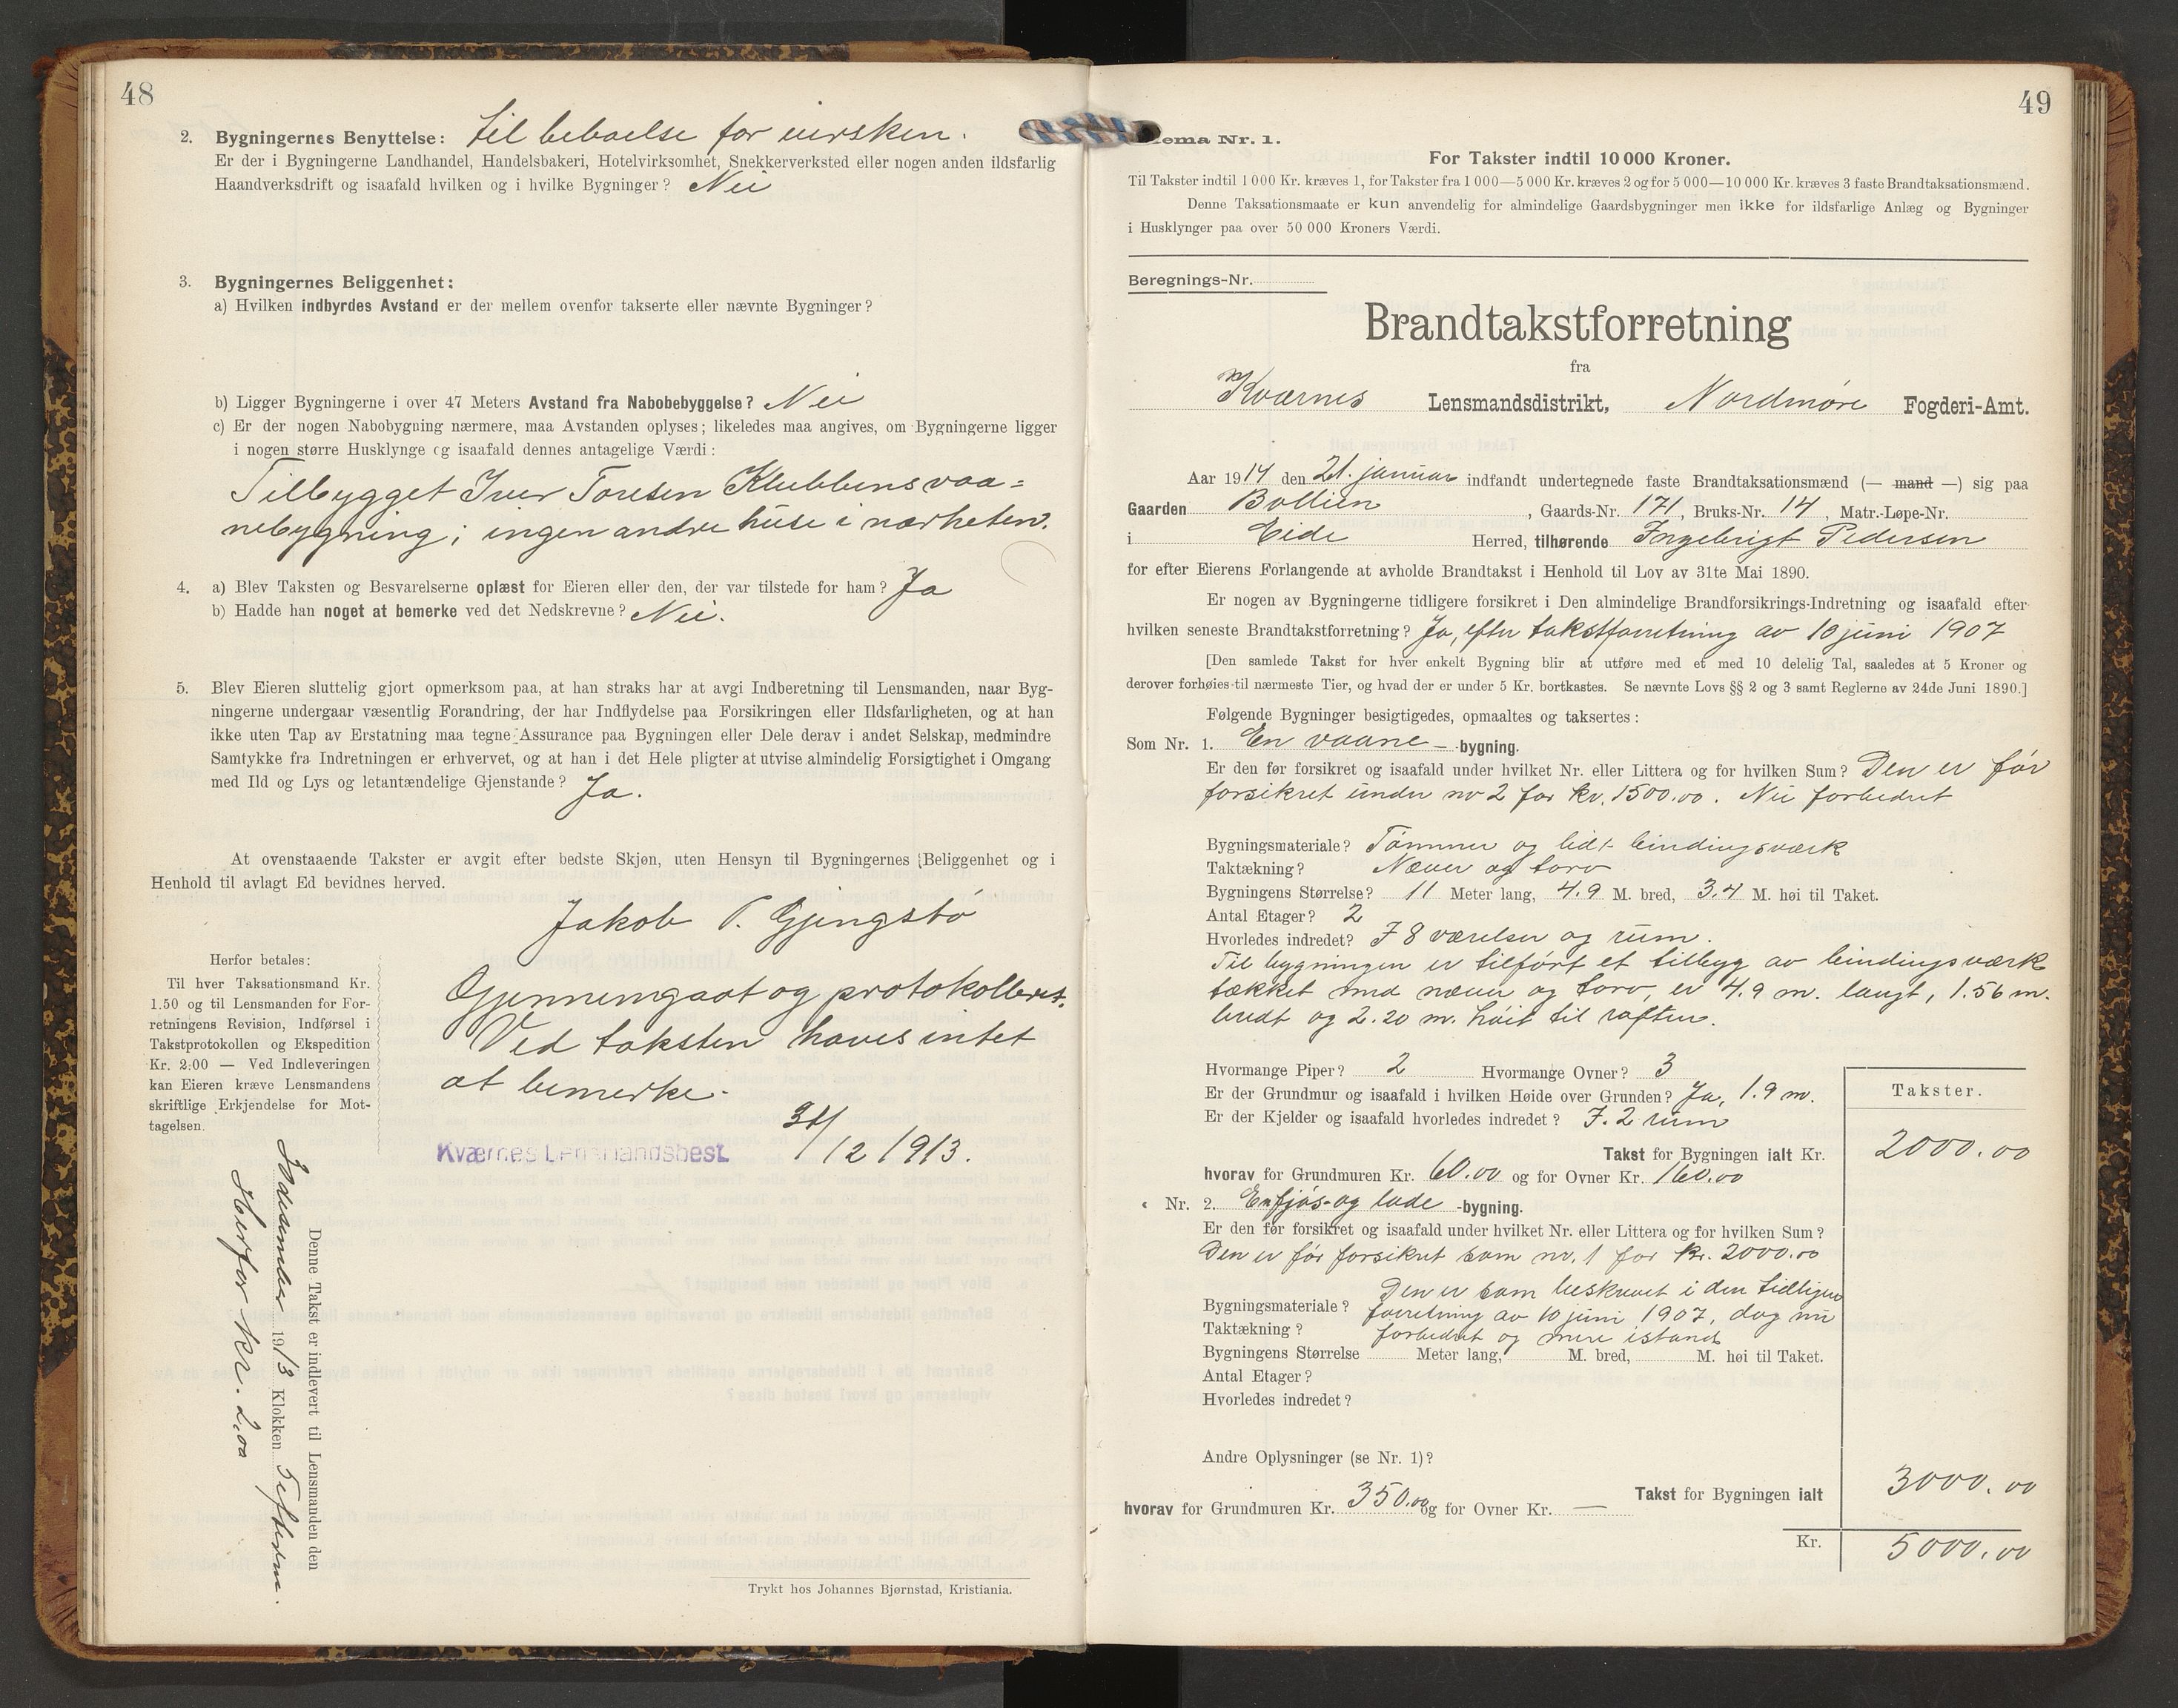 48
2. Bygningernes Benyttelse: til beboelse for eiersken.
Er der i Bygningerne Landhandel, Handelsbakeri, Hotelvirksomhet, Snekkerverksted eller nogen anden ildsfarlig
Haandverksdrift og isaafald hvilken og i hvilke Bygninger? Nei
3. Bygningernes Beliggenhet:
a) Hvilken indbyrdes Avstand er der mellem ovenfor takserte eller nævnte Bygninger?
b) Ligger Bygningerne i over 47 Meters Avstand fra Nabobebyggelse? Nei
c) Er der nogen Nabobygning nærmere, maa Avstanden oplyses; likeledes maa angives, om Bygningerne ligger
i nogen større Husklynge og isaafald dennes antagelige Værdi:
Tilbygget Iver Toresen Klubbens vaa=
nebygning; ingen andre huse i nærheten.
4. a) Blev Taksten og Besvarelserne oplæst for Eieren eller den, der var tilstede for ham? Ja
b) Hadde han noget at bemerke ved det Nedskrevne? Nei.
5. Blev Eieren sluttelig gjort opmerksom paa, at han straks har at avgi Indberetning til Lensmanden, naar Byg-
ningerne undergaar væsentlig Forandring, der har Indflydelse paa Forsikringen eller Ildsfarligheten, og at han
ikke uten Tap av Erstatning maa tegne Assurance paa Bygningen eller Dele derav i andet Selskap, medmindre
Samtykke fra Indretningen er erhvervet, og at han i det Hele pligter at utvise almindelig Forsigtighet i Omgang
med Ild og Lys og letantændelige Gjenstande? Ja.
At ovenstaaende Takster er avgit efter bedste Skjøn, uten Hensyn til Bygningernes Beliggenhet og i
Henhold til avlagt Ed bevidnes herved.
Jakob P. Gjengstø
Herfor betales:
Til hver Taksationsmand Kr.
1.50 og til Lensmanden for For-
retningens Revision, Indførsel i
Takstprotokollen og Ekspedition
Kr. 2.00 — Ved Indleveringen
kan Eieren kræve Lensmandens
skriftlige Erkjendelse for Mot-
tagelsen.
Gjennemgaat og protokolleret.
Ved taksten haves intet
at bemerke.
31/12 1913.
Kværnes Lensmandsbest.
Denne Takst er indlevert til Lensmanden den
31 desember 1913 Klokken 5 efterm.
Herfor kr. 2,00
Trykt hos Johannes Bjørnstad, Kristiania.
49
ema Nr. 1.
For Takster indtil 10 000 Kroner.
Til Takster indtil 1 000 Kr. kræves 1, for Takster fra 1 000—5 000 Kr. kræves 2 og for 5 000—10 000 Kr. kræves 3 faste Brandtaksationsmænd.
Denne Taksationsmaate er kun anvendelig for almindelige Gaardsbygninger men ikke for ildsfarlige Anlæg og Bygninger
i Husklynger paa over 50 000 Kroners Værdi.
Beregnings-Nr.
Brandtakstforretning
fra
Kværnes Lensmandsdistrikt, Nordmøre Fogderi-Amt.
Aar 1914 den 21. januar indfandt undertegnede faste Brandtaksationsmænd (— mand —) sig paa
Gaarden Bollien, Gaards-Nr. 171, Bruks-Nr. 14, Matr.-Løpe-Nr.
i Eide Herred, tilhørende Ingebrigt Pedersen
for efter Eierens Forlangende at avholde Brandtakst i Henhold til Lov av 31te Mai 1890.
Er nogen av Bygningerne tidligere forsikret i Den almindelige Brandforsikrings-Indretning og isaafald efter
hvilken seneste Brandtakstforretning? Ja, efter takstforretning av 10 juni 1907
[Den samlede Takst for hver enkelt Bygning blir at utføre med et med 10 delelig Tal, saaledes at 5 Kroner og
derover forhøies til nærmeste Tier, og hvad der er under 5 Kr. bortkastes. Se nævnte Lovs §§ 2 og 3 samt Reglerne av 24de Juni 1890.]
Følgende Bygninger besigtigedes, opmaaltes og taksertes:
Som Nr. 1. En vaane- -bygning.
Er den før forsikret og isaafald under hvilket Nr. eller Littera og for hvilken Sum? Den er før
forsikret under nr 2 for kr. 1500.00. Nu forbedret
Bygningsmateriale? Tømmer og lidt bindingsværk
Taktækning? Næver og torv
Bygningens Størrelse? 11 Meter lang, 4.9 M. bred, 3.4 M. høi til Taket.
Antal Etager? 2
Hvorledes indredet? I 8 værelser og rum.
Til bygningen er tilført et tilbyg av bindingsværk
tækket med næver og torv, er 4.9 m. langt, 1.56 m.
bredt og 2.20 m. høit til raften.
Hvormange Piper? 2 Hvormange Ovner? 3
Er der Grundmur og isaafald i hvilken Høide over Grunden? Ja, 1.9 m.
Er der Kjelder og isaafald hvorledes indredet? I. 2 rum
Takster.
Takst for Bygningen ialt Kr. 2000.00
hvorav for Grundmuren Kr. 60.00 og for Ovner Kr. 160.00
Nr. 2. En fjøs- og lade -bygning.
Er den før forsikret og isaafald under hvilket Nr. eller Littera og for hvilken Sum?
Den er før forsikret som nr. 1 for kr. 2000.00
Den er som beskrevet i den tidligere
Bygningsmateriale? forretning av 10 juni 1907, dog nu
Taktækning? forbedret og mere istand
Bygningens Størrelse Meter lang, M. bred, M. høi til Taket.
Antal Etager?
Hvorledes indredet?
Andre Oplysninger (se Nr. 1)?
Takst for Bygningen ialt 3000.00
hvorav for Grundmuren Kr. 350.00 og for Ovner Kr. —
Kr. 5000.00